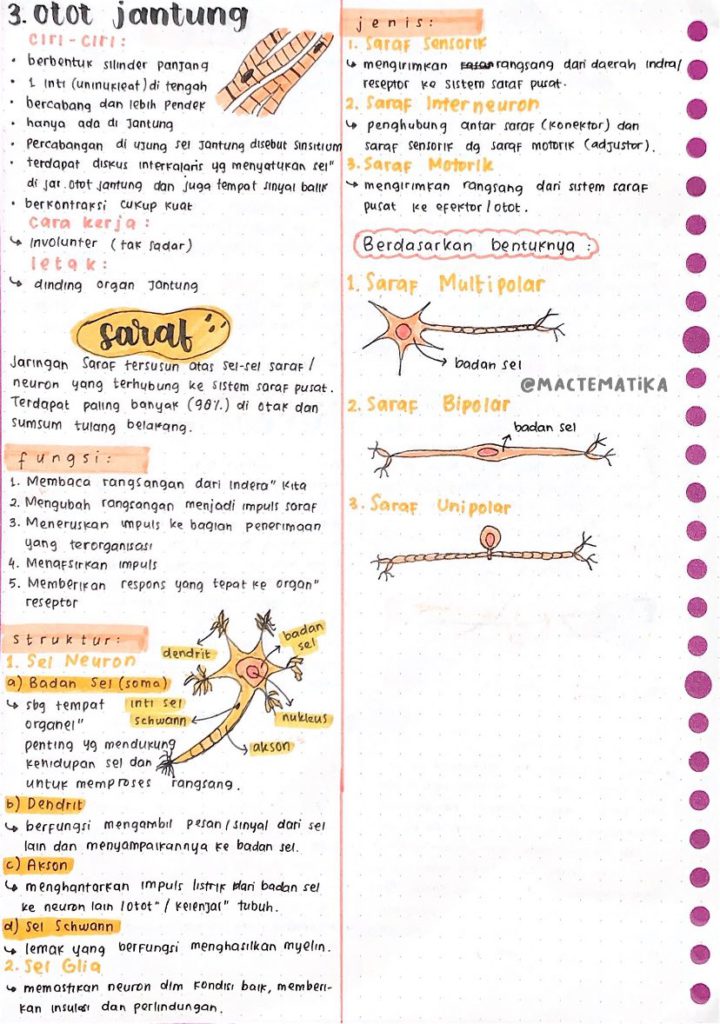 3. otot jantung
ciri-ciri:
• berbentuk silinder panjang
• 1 inti (uninukleat) di tengah
• bercabang dan lebih pendek
• hanya ada di jantung
• Percabangan di ujung sel jantung disebut Sinsitium
• terdapat diskus interkalaris yg menyatukan sel"
di jar. otot jantung dan juga tempat sinyal balik
• berkontraksi cukup kuat
cara kerja:
↳ involunter (tak sadar)
letak:
↳ dinding organ jantung
saraf
Jaringan Saraf tersusun atas sel-sel saraf/
neuron yang terhubung ke sistem saraf pusat.
Terdapat paling banyak (98%) di otak dan
sumsum tulang belakang.
fungsi:
1. Membaca rangsangan dari indera" kita
2. Mengubah rangsangan menjadi impuls saraf
3. Meneruskan impuls ke bagian penerimaan
yang terorganisasi
4. Menafsirkan impuls
5. Memberikan respons yang tepat ke organ"
reseptor
struktur:
1. Sel Neuron
a) Badan Sel (soma)
↳ sbg tempat
organel"
penting yg mendukung
kehidupan sel dan
untuk memproses rangsang.
dendrit
badan
sel
inti sel
schwann
nukleus
akson
b) Dendrit
↳ berfungsi mengambil pesan/sinyal dari sel
lain dan menyampaikannya ke badan sel.
c) Akson
↳ menghantarkan impuls listrik dari badan sel
ke neuron lain/otot"/kelenjar" tubuh.
d) Sel Schwann
↳ lemak yang berfungsi menghasilkan myelin.
2. Sel Glia
↳ memastikan neuron dlm kondisi baik, memberi-
kan insulasi dan perlindungan.
jenis:
1. Saraf Sensorik
↳ mengirimkan rangsang dari daerah indra/
reseptor ke sistem saraf pusat.
2. Saraf Interneuron
↳ penghubung antar saraf (konektor) dan
saraf sensorik dg saraf motorik (adjustor).
3. Saraf Motorik
↳ mengirimkan rangsang dari sistem saraf
pusat ke efektor/otot.
Berdasarkan bentuknya:
1. Saraf Multipolar
badan sel
@MACTEMATiKA
2. Saraf Bipolar
badan sel
3. Saraf Unipolar